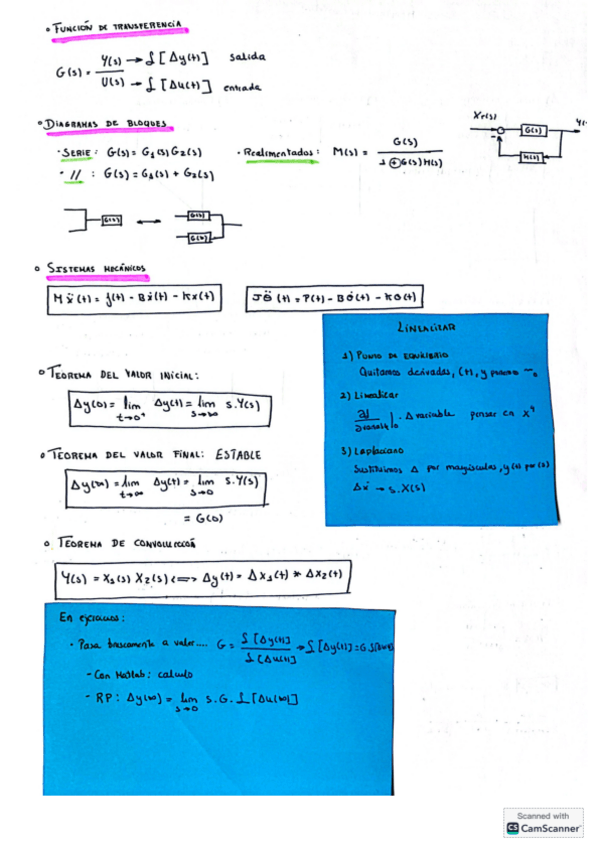 • FUNCIÓN DE TRANSFERENCIA
G(s) = Y(s) → ℒ[Δy(t)] salida
U(s) → ℒ[Δu(t)] entrada
• DIAGRAMAS DE BLOQUES
• SERIE: G(s) = G₁(s) G₂(s)
• // : G(s) = G₁(s) + G₂(s)
• Realimentados: M(s) = G(s)
1 ⊕ G(s) H(s)
Xr(s)
G(s)
H(s)
-
G(s)
o SISTEMAS MECÁNICOS
M ẍ(t) = f(t) - B ẋ(t) - K x(t)
J θ̈ (t) = P(t) - B θ̇(t) - K θ(t)
LINEALIZAR
1) PUNTO DE EQUILIBRIO
Quitamos derivadas, (t), y ponemos ~₀
2) Linealizar
· Δ variable pensar en
3) Laplaciano
Sustituimos Δ por mayúsculas, y (t) por (s)
Δẋ → s.X(s)
o TEOREMA DEL VALOR INICIAL:
Δy(0) = lim Δy(t) = lim s.Y(s)
t→0⁺ s→∞
o TEOREMA DEL VALOR FINAL: ESTABLE
Δy(∞) = lim Δy(t) = lim s.Y(s)
t→∞ s→0
= G(0)
o TEOREMA DE CONVOLUCIÓN
Y(s) = X₁(s) X₂(s) <=> Δy(t) = Δx₁(t) * Δx₂(t)
En ejercicios:
• Pasa bruscamente a valor.... G = ℒ[Δy(t)] → ℒ[Δy(t)] = G
ℒ[Δu(t)]
- Con Matlab: calculo
- RP: Δy(∞) = lim s.G.ℒ[Δu(∞)]
s→0
Scanned with
CS CamScanner